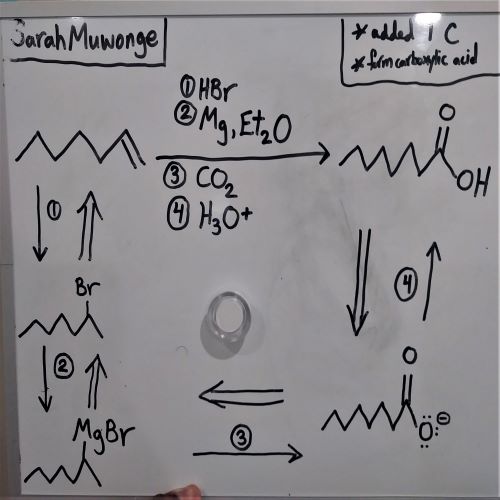 SarahMuwonge
* added 1 C
* form carboxylic acid
① HBr
② Mg, Et2O
③ CO2
④ H3O+
O
OH
①
Br
④
②
O
MgBr
③
O⊖